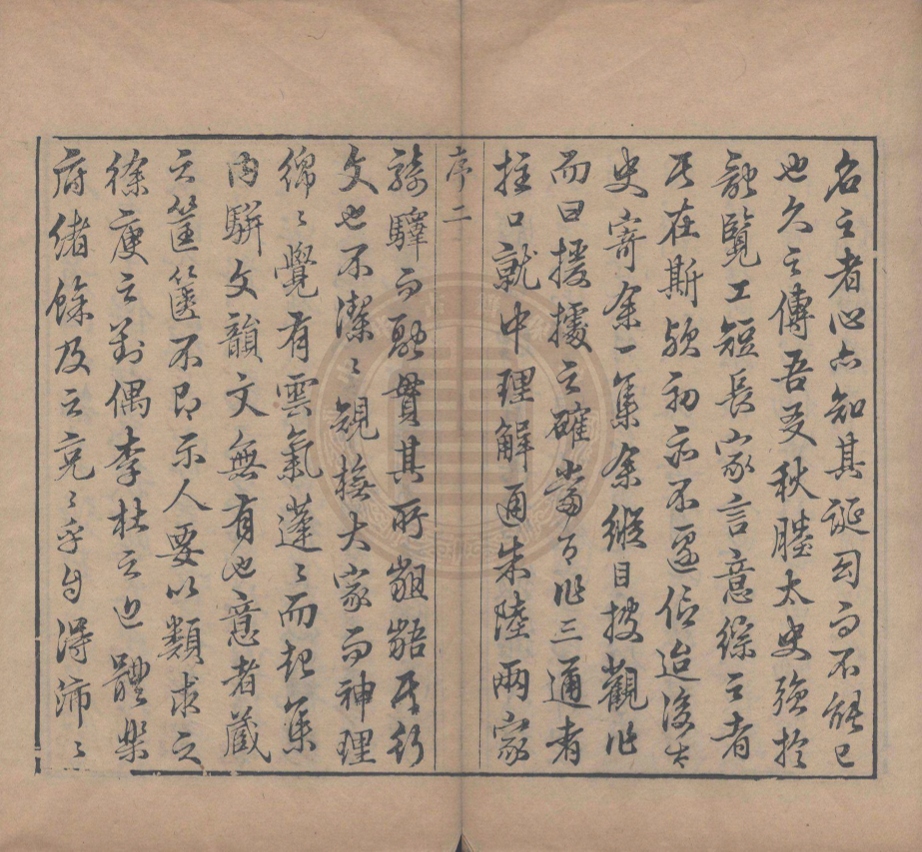 名之者心亦知其誕囿而不能已
也久之傳吾友秋塍太史強於
記覽工短長家言意綜之者
其在斯欤初亦不遽信迨後太
史寄余一集余縱目披觀作
而曰援據之確當可作三通者
拄口就中理解通朱陸兩家
序二
騎驛而融貫其所齟齬其行
文也不潔潔規橅大家而神理
綿綿覺有雲氣蓬蓬而起集
內駢文韻文無有也意者藏
之筐篋不即示人要以類求之
徐庾之對偶李杜之近體樂
府緒餘及之亮亮乎自得沛沛